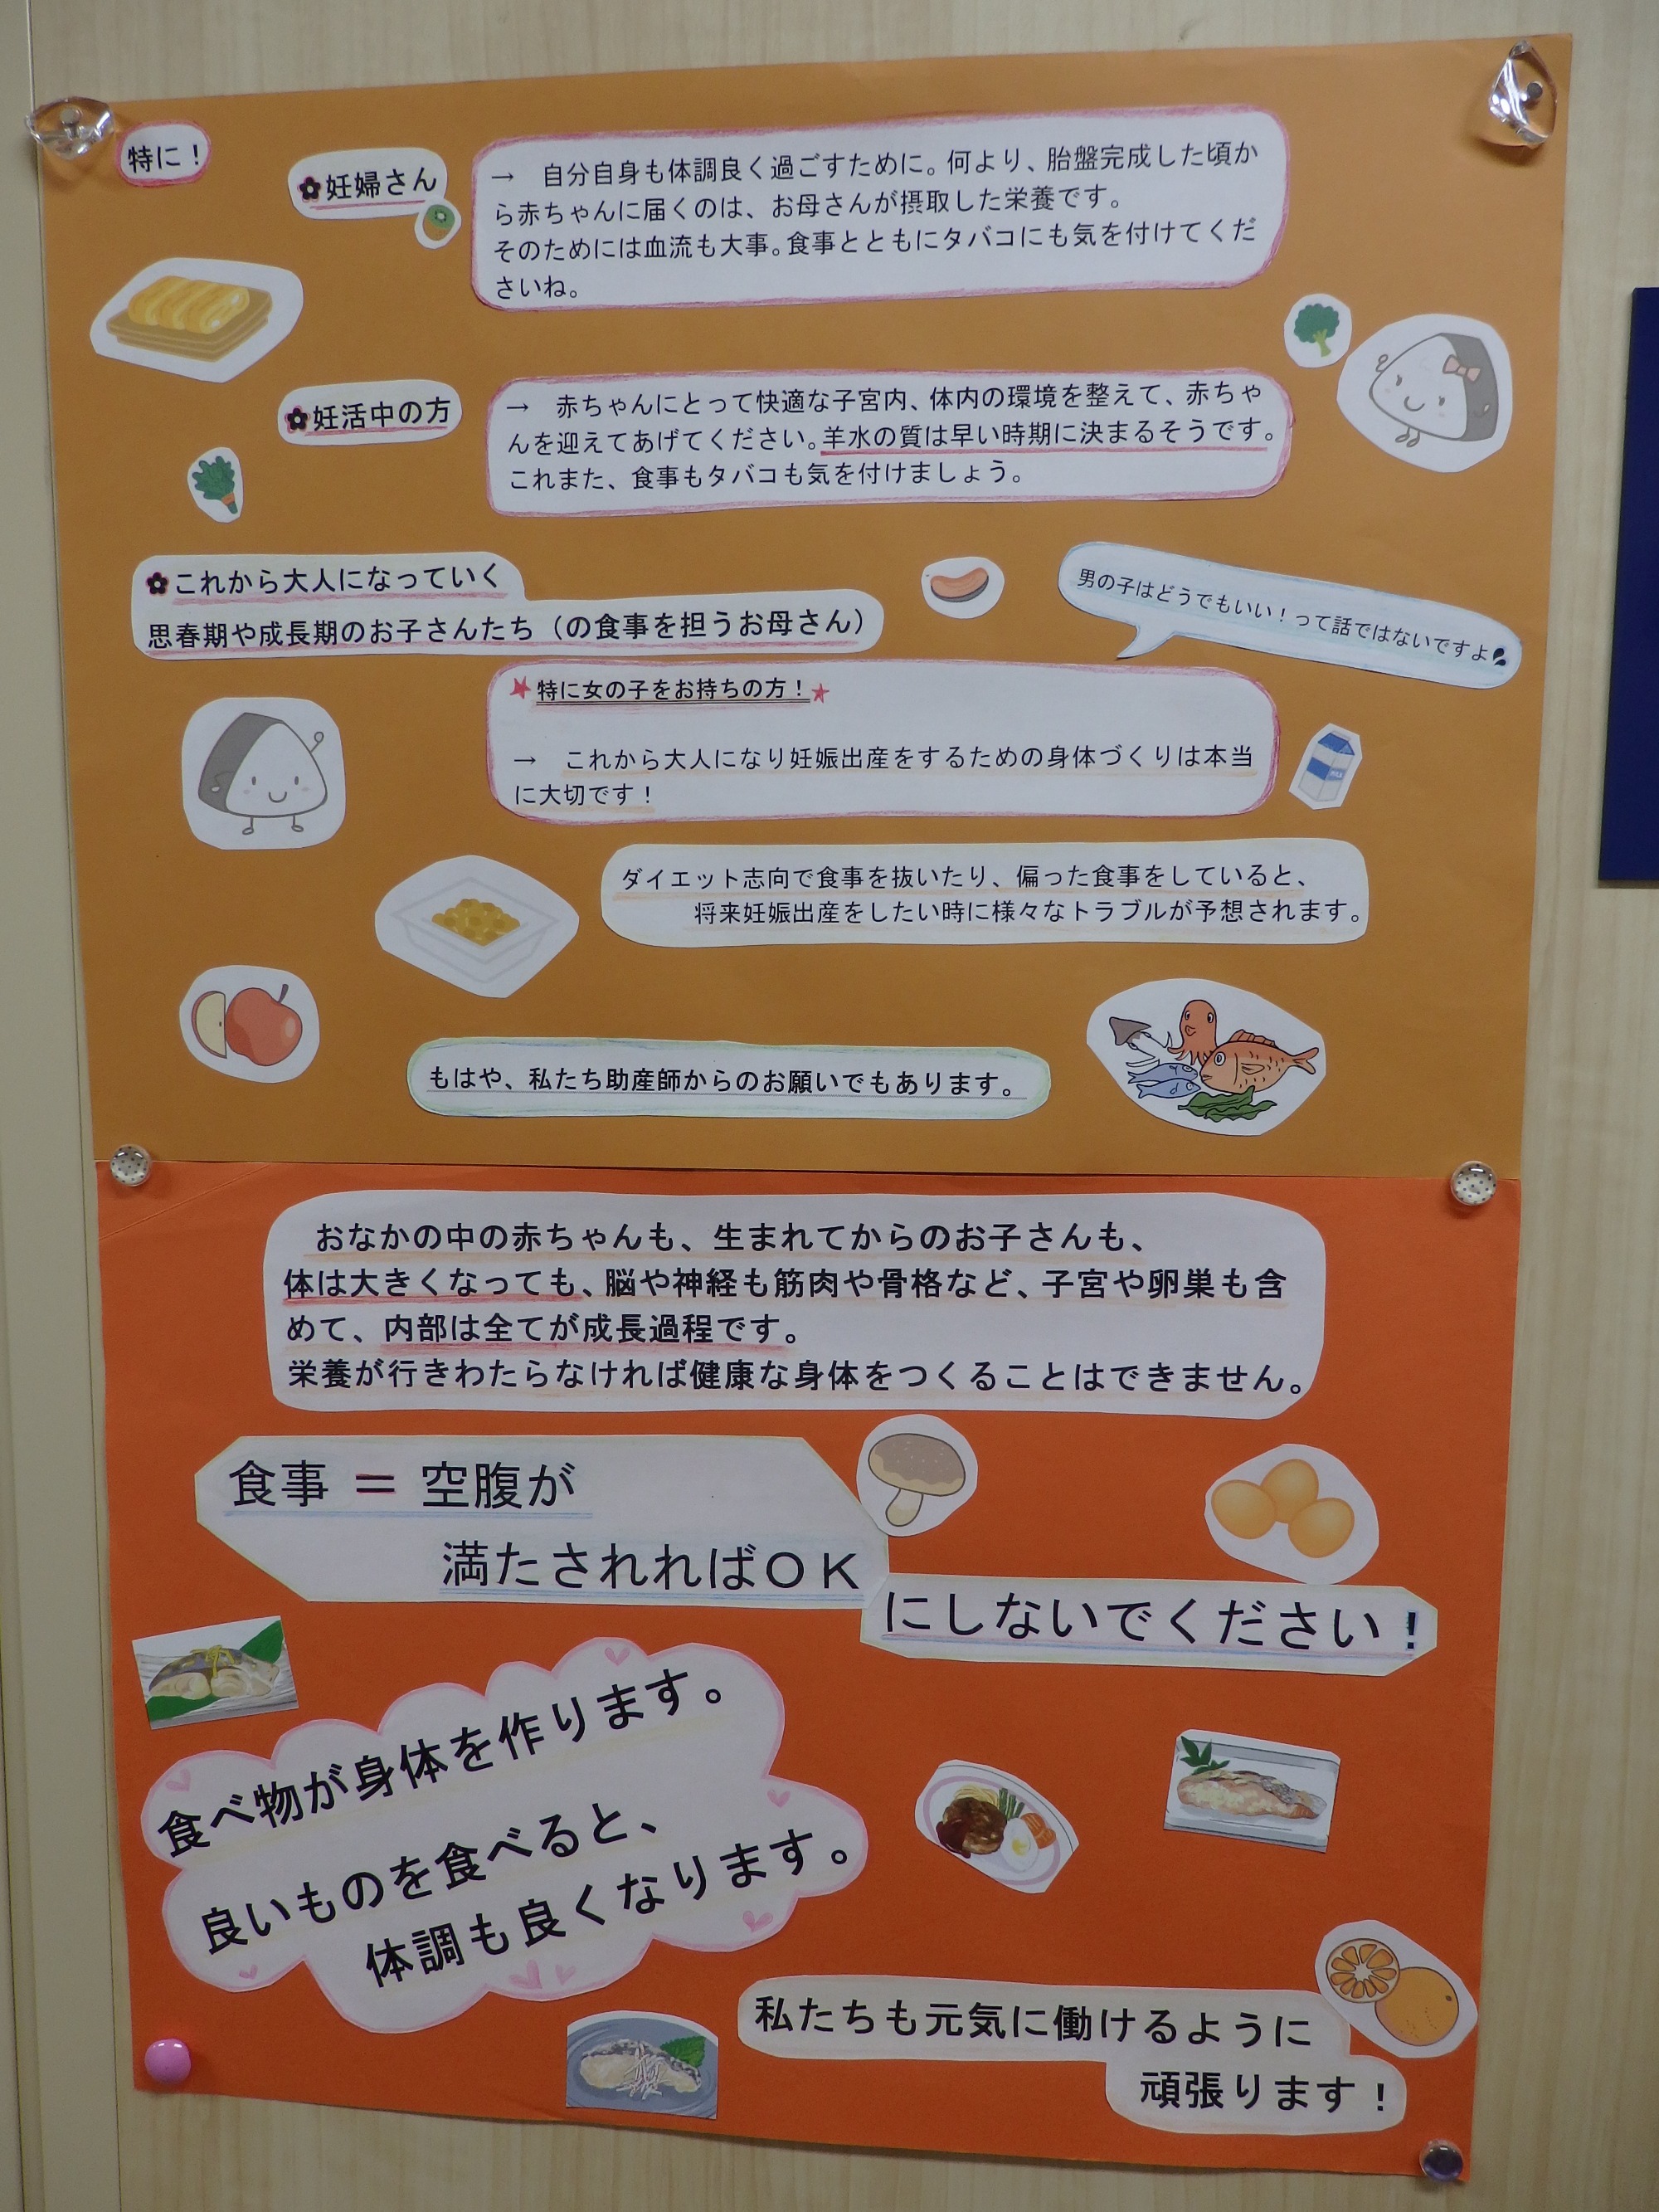 特に！
✿妊婦さん
→　自分自身も体調良く過ごすために。何より、胎盤完成した頃か
ら赤ちゃんに届くのは、お母さんが摂取した栄養です。
そのためには血流も大事。食事とともにタバコにも気を付けてくだ
さいね。
✿妊活中の方
→　赤ちゃんにとって快適な子宮内、体内の環境を整えて、赤ちゃ
んを迎えてあげてください。羊水の質は早い時期に決まるそうです。
これまた、食事もタバコも気を付けましょう。
✿これから大人になっていく
思春期や成長期のお子さんたち（の食事を担うお母さん）
男の子はどうでもいい！って話ではないですよ
★特に女の子をお持ちの方！★
→　これから大人になり妊娠出産をするための身体づくりは本当
に大切です！
MILK
ダイエット志向で食事を抜いたり、偏った食事をしていると、
将来妊娠出産をしたい時に様々なトラブルが予想されます。
もはや、私たち助産師からのお願いでもあります。
おなかの中の赤ちゃんも、生まれてからのお子さんも、
体は大きくなっても、脳や神経も筋肉や骨格など、子宮や卵巣も含
めて、内部は全てが成長過程です。
栄養が行きわたらなければ健康な身体をつくることはできません。
食事 ＝ 空腹が
満たされればＯＫ
にしないでください！
食べ物が身体を作ります。
良いものを食べると、
体調も良くなります。
私たちも元気に働けるように
頑張ります！